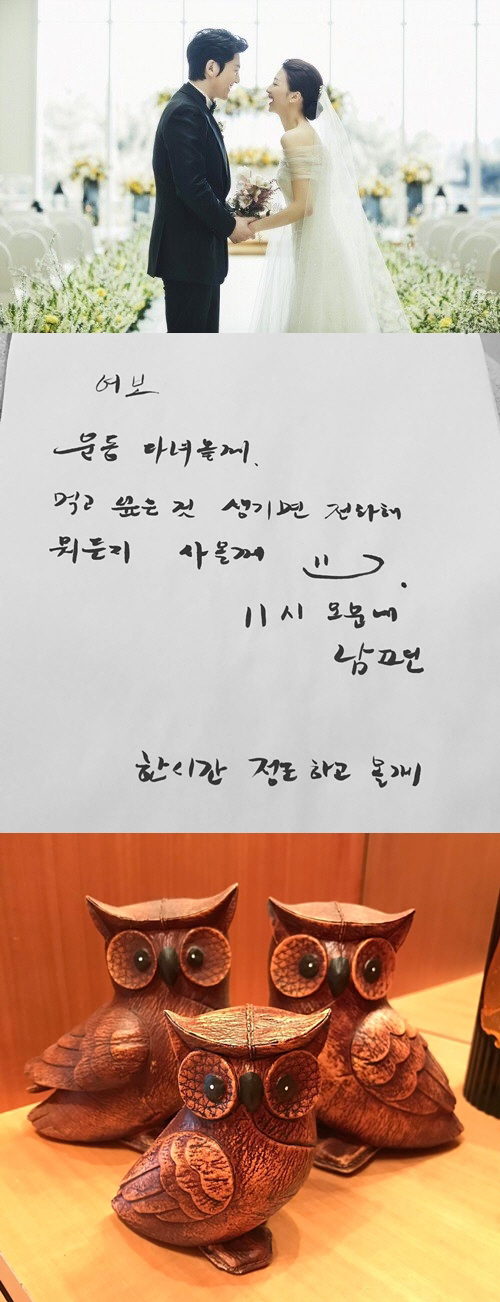 여보
운동 다녀올게.
먹고 싶은 것 생기면 전화해
뭐든지 사올께
11시 오분에
남편
한시간 정도 하고 올게